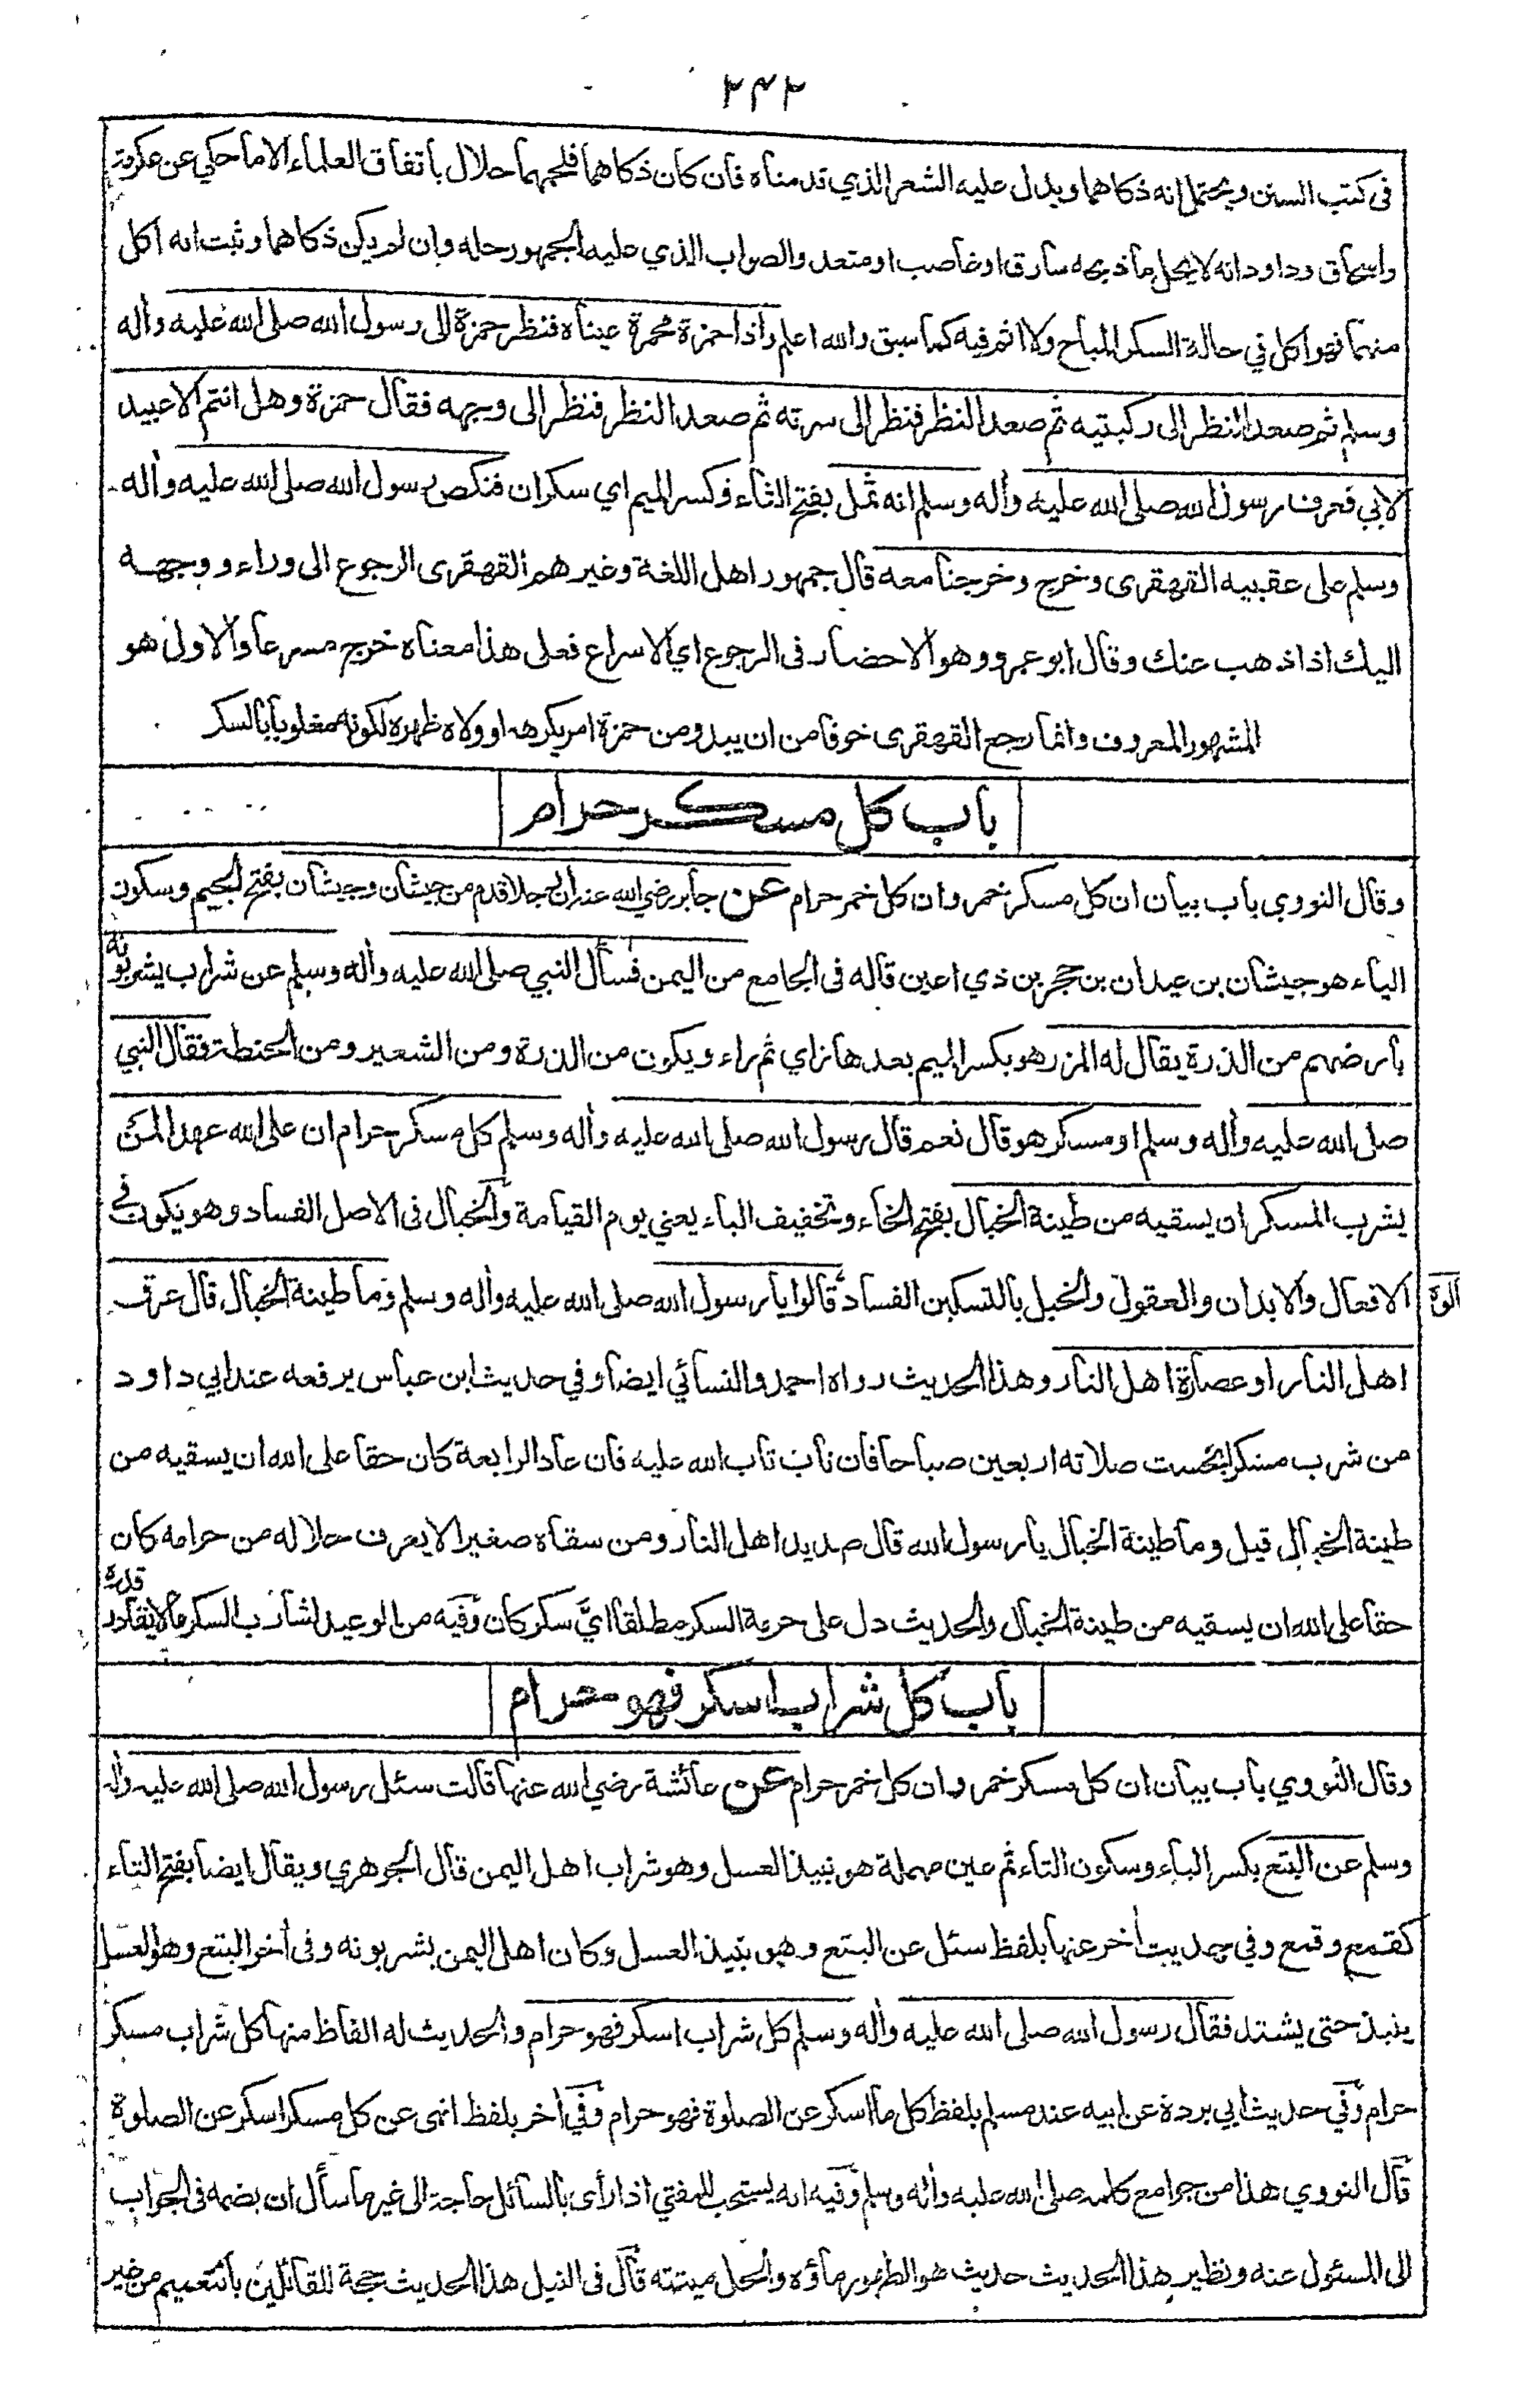 ٢٤٢
فى كتب السنن ويحتمل انه ذكاهما ويدل عليه الشعر الذي قدمناه فان كان ذكاهما فلحمهما حلال باتفاق العلماء الا ما حكي عن عكرمة
واسحاق وداود انه لا يحل ما ذبحه سارق او غاصب او متعد والصواب الذي عليه الجمهور حله وان لم يكن ذكاهما وثبت انه اكل
منهما فهو اكل في حالة السكر المباح ولا اثم فيه كما سبق والله اعلم واذا حمزة محمرة عيناه فنظر حمزة الى رسول الله صلى الله عليه وأله
وسلم ثم صعد النظر الى ركبتيه ثم صعد النظر فنظر الى سرته ثم صعد النظر فنظر الى وجهه فقال حمزة وهل انتم الا عبيد
لابي فعرف رسول الله صلى الله عليه وأله وسلم انه ثمل بفتح الثاء وكسر الميم اي سكران فنكص رسول الله صلى الله عليه وأله
وسلم على عقبيه القهقرى وخرج وخرجنا معه قال جمهور اهل اللغة وغيرهم القهقرى الرجوع الى وراء ووجهه
اليك اذا ذهب عنك وقال ابو عمرو وهو الاحضار فى الرجوع اي الاسراع فعلى هذا معناه خرج مسرعا والاول هو
المشهور المعروف وانما رجع القهقرى خوفا من ان يبدو من حمزة امر يكرهه لو ولاه ظهره لكونه مغلوبا بالسكر
باب كل مسكر حرام
وقال النووي باب بيان ان كل مسكر خمر وان كل خمر حرام عن جابر رضي الله عنه ان رجلا قدم من جيشان وجيشان بفتح الجيم وسكون
الياء هو جيشان بن عيدان بن حجر بن ذي اعين قاله فى الجامع من اليمن فسأل النبي صلى الله عليه وأله وسلم عن شراب يشربونه
بارضهم من الذرة يقال له المزر هو بكسر الميم بعدها زاي ثم راء ويكون من الذرة ومن الشعير ومن الحنطة فقال النبي
صلى الله عليه وأله وسلم او مسكر هو قال نعم قال رسول الله صلى الله عليه وأله وسلم كل مسكر حرام ان على الله عهدا لمن
يشرب المسكر ان يسقيه من طينة الخبال بفتح الخاء وتخفيف الباء يعني يوم القيامة والخبال فى الاصل الفساد وهو يكون في
الافعال والابدان والعقول والخبل بالتسكين الفساد قالوا يا رسول الله صلى الله عليه وأله وسلم وما طينة الخبال قال عرق
اهل النار او عصارة اهل النار وهذا الحديث رواه احمد والنسائي ايضا وفي حديث ابن عباس يرفعه عند ابي داود
من شرب مسكرا بخست صلاته اربعين صباحا فان تاب تاب الله عليه فان عاد الرابعة كان حقا على الله ان يسقيه من
طينة الخبال قيل وما طينة الخبال يا رسول الله قال صديد اهل النار ومن سقاه صغيرا لا يعرف حلاله من حرامه كان
حقا على الله ان يسقيه من طينة الخبال والحديث دل على حرمة السكر مطلقا ايَّ سكر كان وفيه من الوعيد لشارب السكر ما لا يقادر قدره
باب كل شراب اسكر فهو حرام
وقال النووي باب بيان ان كل مسكر خمر وان كل خمر حرام عن عائشة رضي الله عنها قالت سئل رسول الله صلى الله عليه وأله
وسلم عن البتع بكسر الباء وسكون التاء ثم عين مهملة هو نبيذ العسل وهو شراب اهل اليمن قال الجوهري ويقال ايضا بفتح التاء
كقمع وقمع وفي حديث أخر عنها بلفظ سئل عن البتع وهو نبيذ العسل وكان اهل اليمن يشربونه وفى أخر البتع وهو العسل
ينبذ حتى يشتد فقال رسول الله صلى الله عليه وأله وسلم كل شراب اسكر فهو حرام والحديث له الفاظ منها كل شراب مسكر
حرام وفي حديث ابي بردة عن ابيه عند مسلم بلفظ كل ما اسكر عن الصلوة فهو حرام وفي أخر بلفظ انهى عن كل مسكر اسكر عن الصلوة
قال النووي هذا من جوامع كلمه صلى الله عليه وأله وسلم وفيه انه يستحب للمفتي اذا رأى بالسائل حاجة الى غير ما سأل ان يضمه فى الجواب
الى المسئول عنه ونظير هذا الحديث حديث هو الطهور ماؤه والحل ميتته قال فى النيل هذا الحديث حجة للقائلين بالتعميم من غير